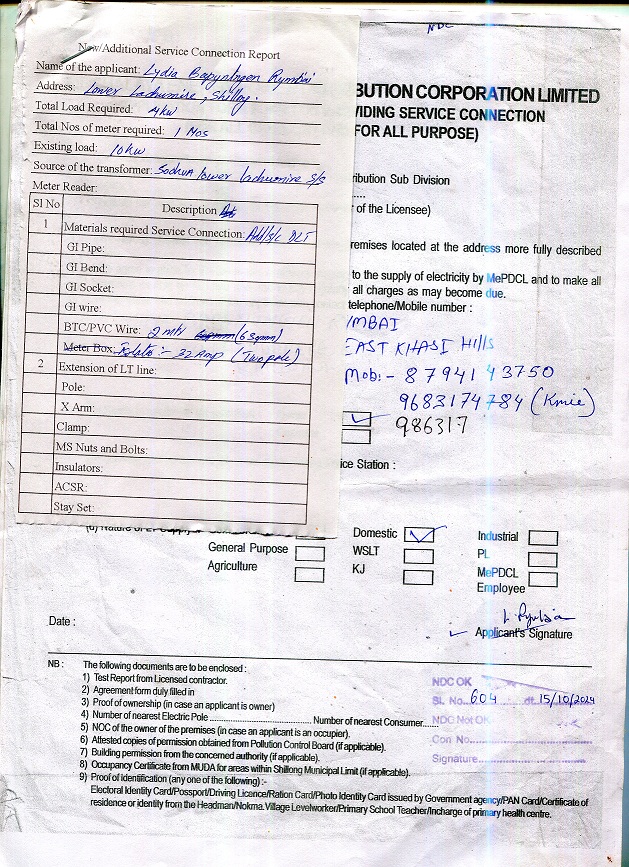 NDC
New/Additional Service Connection Report
Name of the applicant: Lydia Bapynhgen Rymbai
Address: Lower Lachumire, Shillong.
Total Load Required: 4kw
Total Nos of meter required: 1 Nos
Existing load: 10kw
Source of the transformer: Sodhua lower lachumire S/S
Meter Reader:
Sl No Description
1 Materials required Service Connection: Add/s/c DLT
GI Pipe:
GI Bend:
GI Socket:
GI wire:
BTC/PVC Wire: 2 mtr (6 Sqmm)
Meter Box: :- 32 Amp (Two pole)
2 Extension of LT line:
Pole:
X Arm:
Clamp:
MS Nuts and Bolts:
Insulators:
ACSR:
Stay Set:
BUTION CORPORATION LIMITED
VIDING SERVICE CONNECTION
FOR ALL PURPOSE)
ribution Sub Division
of the Licensee)
remises located at the address more fully described
to the supply of electricity by MePDCL and to make all
all charges as may become due.
telephone/Mobile number :
MBAI
EAST KHASI HILLS
Mob:- 87941 43750
9683174784 (Kmie)
986317
ice Station :
Domestic Industrial
General Purpose WSLT PL
Agriculture KJ MePDCL
Employee
Date :
Applicant's Signature
NB : The following documents are to be enclosed :
1) Test Report from Licensed contractor.
2) Agreement form duly filled in
3) Proof of ownership (in case an applicant is owner)
4) Number of nearest Electric Pole .................................... Number of nearest Consumer......
5) NOC of the owner of the premises (in case an applicant is an occupier).
6) Attested copies of permission obtained from Pollution Control Board (if applicable).
7) Building permission from the concerned authority (if applicable).
8) Occupancy Certificate from MUDA for areas within Shillong Municipal Limit (if applicable).
9) Proof of identification (any one of the following) :-
Electoral Identity Card/Possport/Driving Licence/Ration Card/Photo Identity Card issued by Government agency/PAN Card/Certificate of
residence or identity from the Headman/Nokma.Village Levelworker/Primary School Teacher/Incharge of primary health centre.
NDC OK
Sl. No. 604 dt. 15/10/2024
NDC Not OK
Con No.
Signature